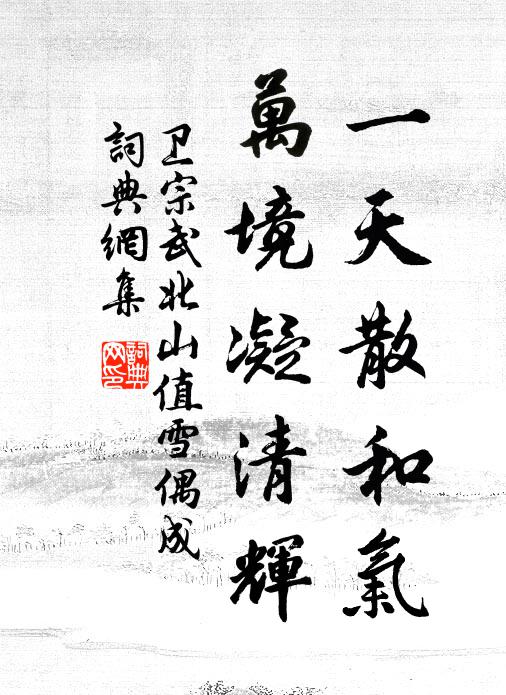 一天散和氣
萬境凝清輝
卫宗武北山值雪偶成
詞典網集
詞典網印